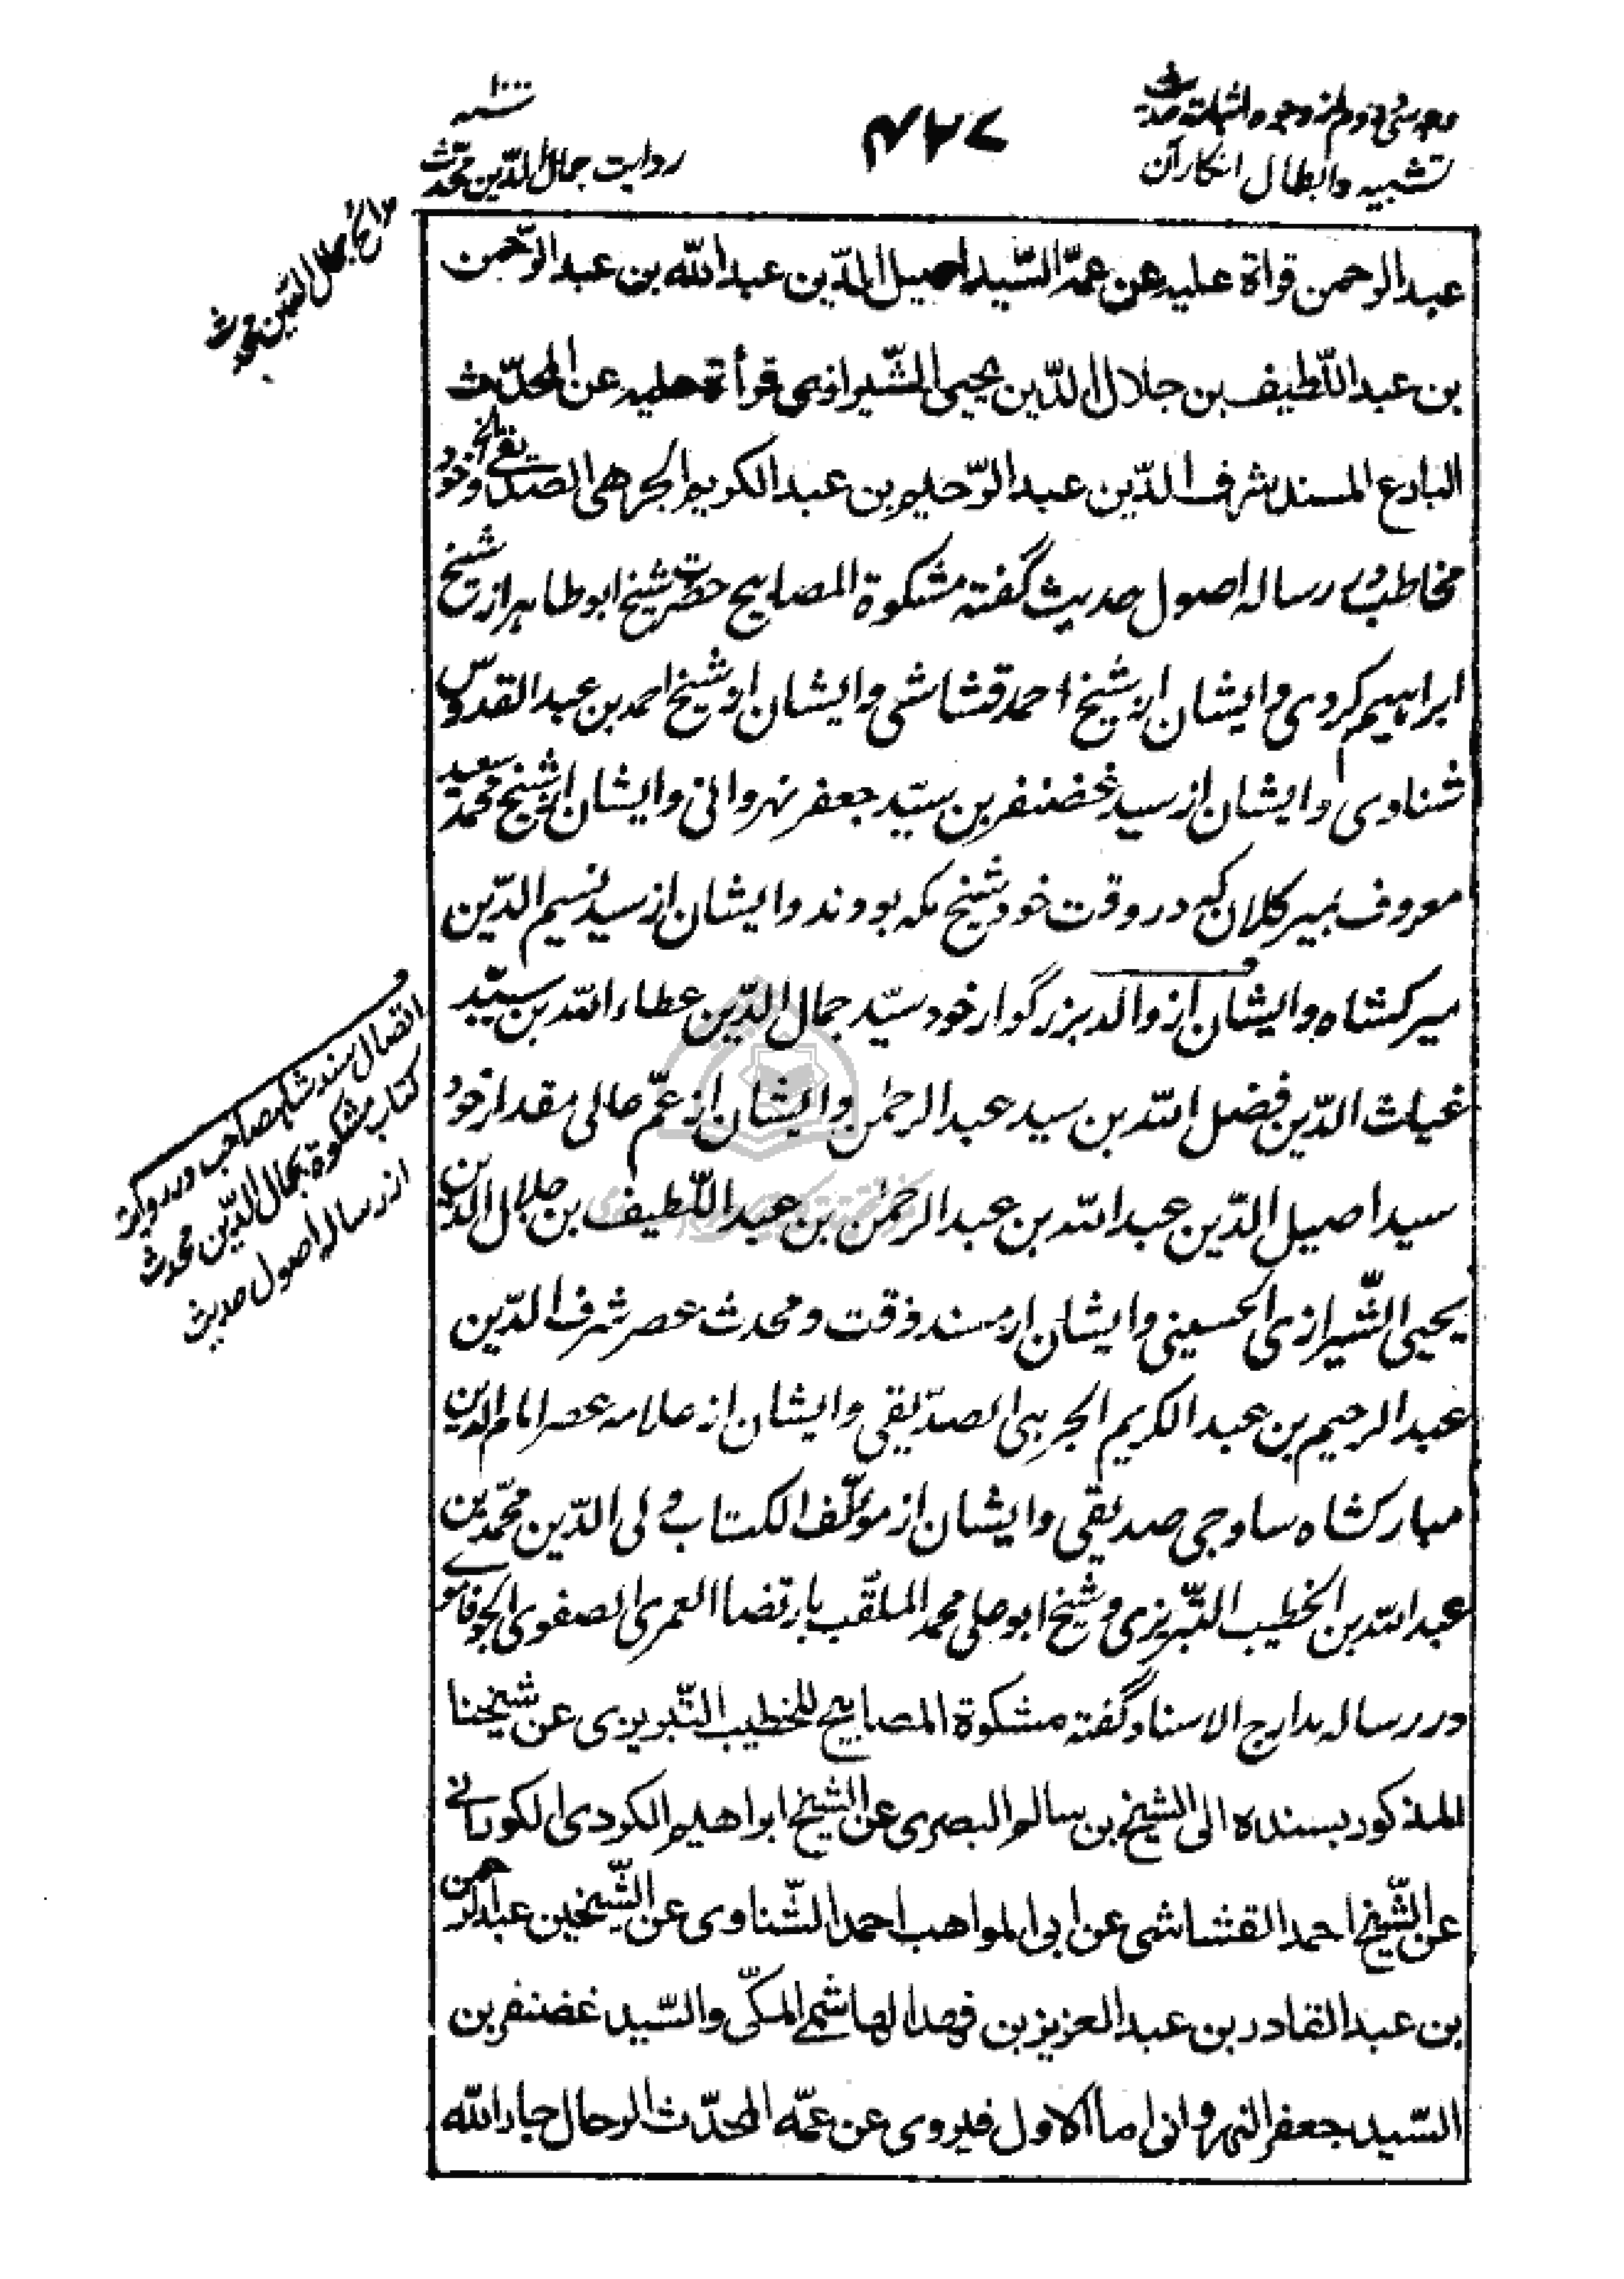 وجه سی و دوم از وجوه اثبات حدیث
تشبیه و ابطال انکار آن
۴۸۷
سنه ۱۰۰۰
روایت جمال الدّین محدّث
جمال الدّین محدث
عبد الرحمن قراءة علیه عن عمّه السّید اصیل الدّین عبد اللّه بن عبد الرّحمن
بن عبد اللّطیف بن جلال الدّین یحیی الشّیرازی قرأة علیه عن المحدّث
البارع المسند شرف الدّین عبد الرّحیم بن عبد الکریم الجرهی الصدّیقی الخ و خود
مخاطب در رساله اصول حدیث گفته مشکوة المصابیح حضرت شیخ ابو طاهر از شیخ
ابراهیم کردی و ایشان از شیخ احمد قشاشی و ایشان از شیخ احمد بن عبد القدوس
شناوی و ایشان از سید غضنفر بن سیّد جعفر نهروانی و ایشان از شیخ محمد سعید
معروف بمیر کلان که در وقت خود شیخ مکه بودند و ایشان از سید نسیم الدّین
میرکشاه و ایشان از والد بزرگوار خود سیّد جمال الدّین عطاء اللّه بن سیّد
غیاث الدّین فضل اللّه بن سید عبد الرحمٰن و ایشان از عمّ عالی مقدار خود
سید اصیل الدّین عبد اللّه بن عبد الرحمٰن بن عبد اللّطیف بن جلال الدّین
یحیی الشّیرازی الحسینی و ایشان از مسند وقت و محدث عصر شرف الدّین
عبد الرحیم بن عبد الکریم الجرهی الصدّیقی و ایشان از علامه عصر امام الدین
مبارکشاه ساوجی صدیقی و ایشان از مؤلّف الکتاب ولی الدّین محمّد بن
عبد اللّه بن الخطیب التّبریزی و شیخ ابو علی محمد الملقّب بارتضا العمری الصفوی الجوفاموے
در رساله مدارج الاسناد گفته مشکوة المصابیح للخطیب التّبریزی عن شیخنا
المذکور بسنده الی الشیخ بن سالم البصری عن الشیخ ابراهیم الکردی الکورانی
عن الشّیخ احمد القشاشی عن ابی المواهب احمد الشّناوی عن الشّیخین عبد الرحمن
بن عبد القادر بن عبد العزیز بن فهد الهاشمی المکّی و السّید غضنفر بن
السّید جعفر النهروانی اما الاول فیروی عن عمّه المحدّث الرحال جار اللّه
اتصال سند شاهصاحب در روایت
کتاب مشکوة بجمال الدّین محدث
از رساله اصول حدیث